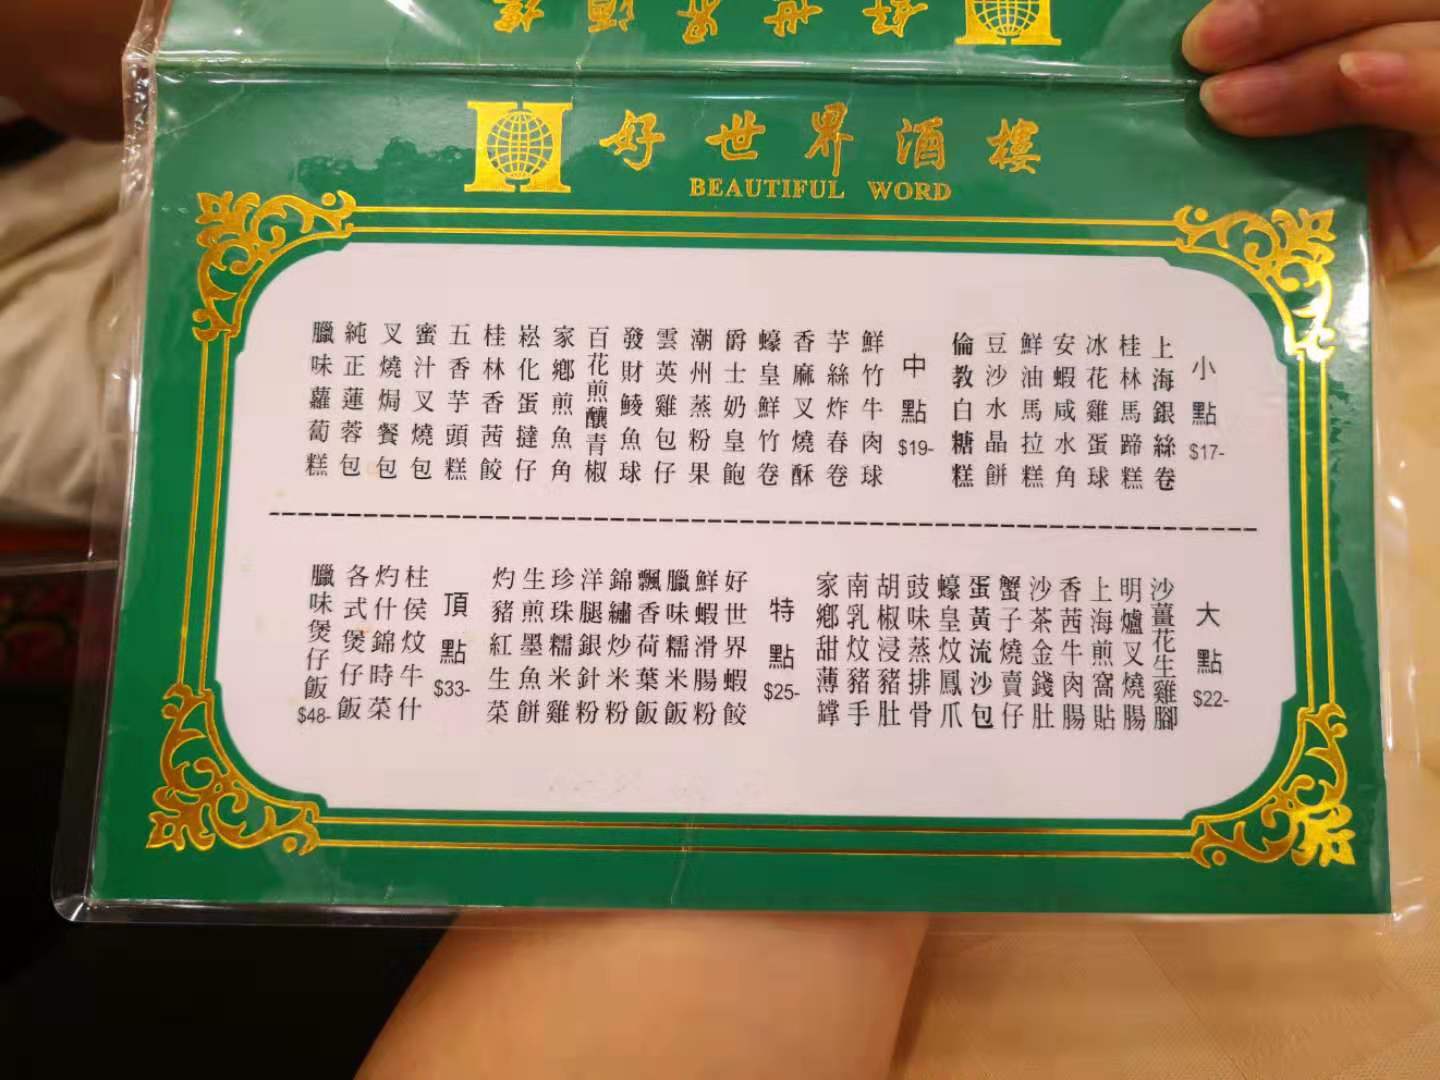 好世界酒樓
好世界酒樓
BEAUTIFUL WORD
小點
$17-
上海銀絲卷
桂林馬蹄糕
冰花雞蛋球
安蝦咸水角
鮮油馬拉糕
豆沙水晶餅
倫教白糖糕
中點
$19-
鮮竹牛肉球
芋絲炸春卷
香麻叉燒酥
蠔皇鮮竹卷
爵士奶皇飽
潮州蒸粉果
雲英雞包仔
發財鯪魚球
百花煎釀青椒
家鄉煎魚角
崧化蛋撻仔
桂林香茜餃
五香芋頭糕
蜜汁叉燒包
叉燒焗餐包
純正蓮蓉包
臘味蘿蔔糕
大點
$22-
沙薑花生雞腳
明爐叉燒腸
上海煎窩貼
香茜牛肉腸
沙茶金錢肚
蟹子燒賣仔
蛋黃流沙包
蠔皇炆鳳爪
豉味蒸排骨
胡椒浸豬肚
南乳炆豬手
家鄉甜薄罉
特點
$25-
好世界蝦餃
鮮蝦滑腸粉
臘味糯米飯
飄香荷葉飯
錦繡炒米粉
洋腿銀針粉
珍珠糯米雞
生煎墨魚餅
灼豬紅生菜
頂點
$33-
柱侯炆牛什
灼什錦時菜
各式煲仔飯
臘味煲仔飯
$48-